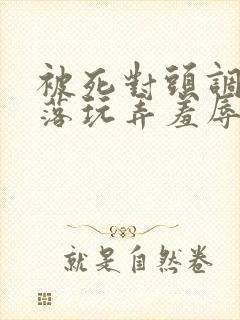 被死對頭調
落玩弄羞辱
就是自然卷